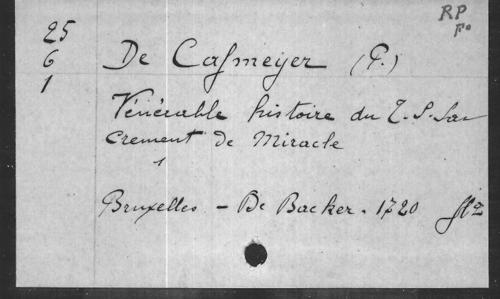 RP
Fo
25
6
1
De Cafmeyer (P.)
Vénérable histoire du T. S. Sa-
crement de Miracle
1
Bruxelles - De Backer. 1720